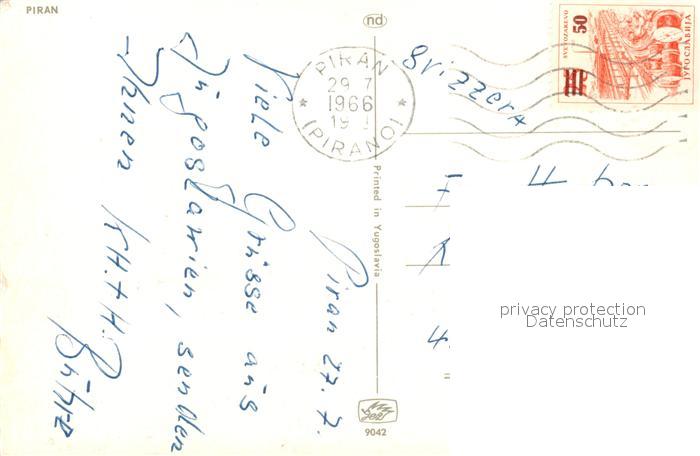 PIRAN
nd
PIRAN
29.7
1966
19
(PIRANO)
50
SVETOZAREVO
ЈУГОСЛАВИЈА
Svizzera
Piran 27. 7.
Viele Grüsse aus
Jugoslawien, senden
Ihnen
Printed in Yugoslavia
9042
privacy protection
Datenschutz